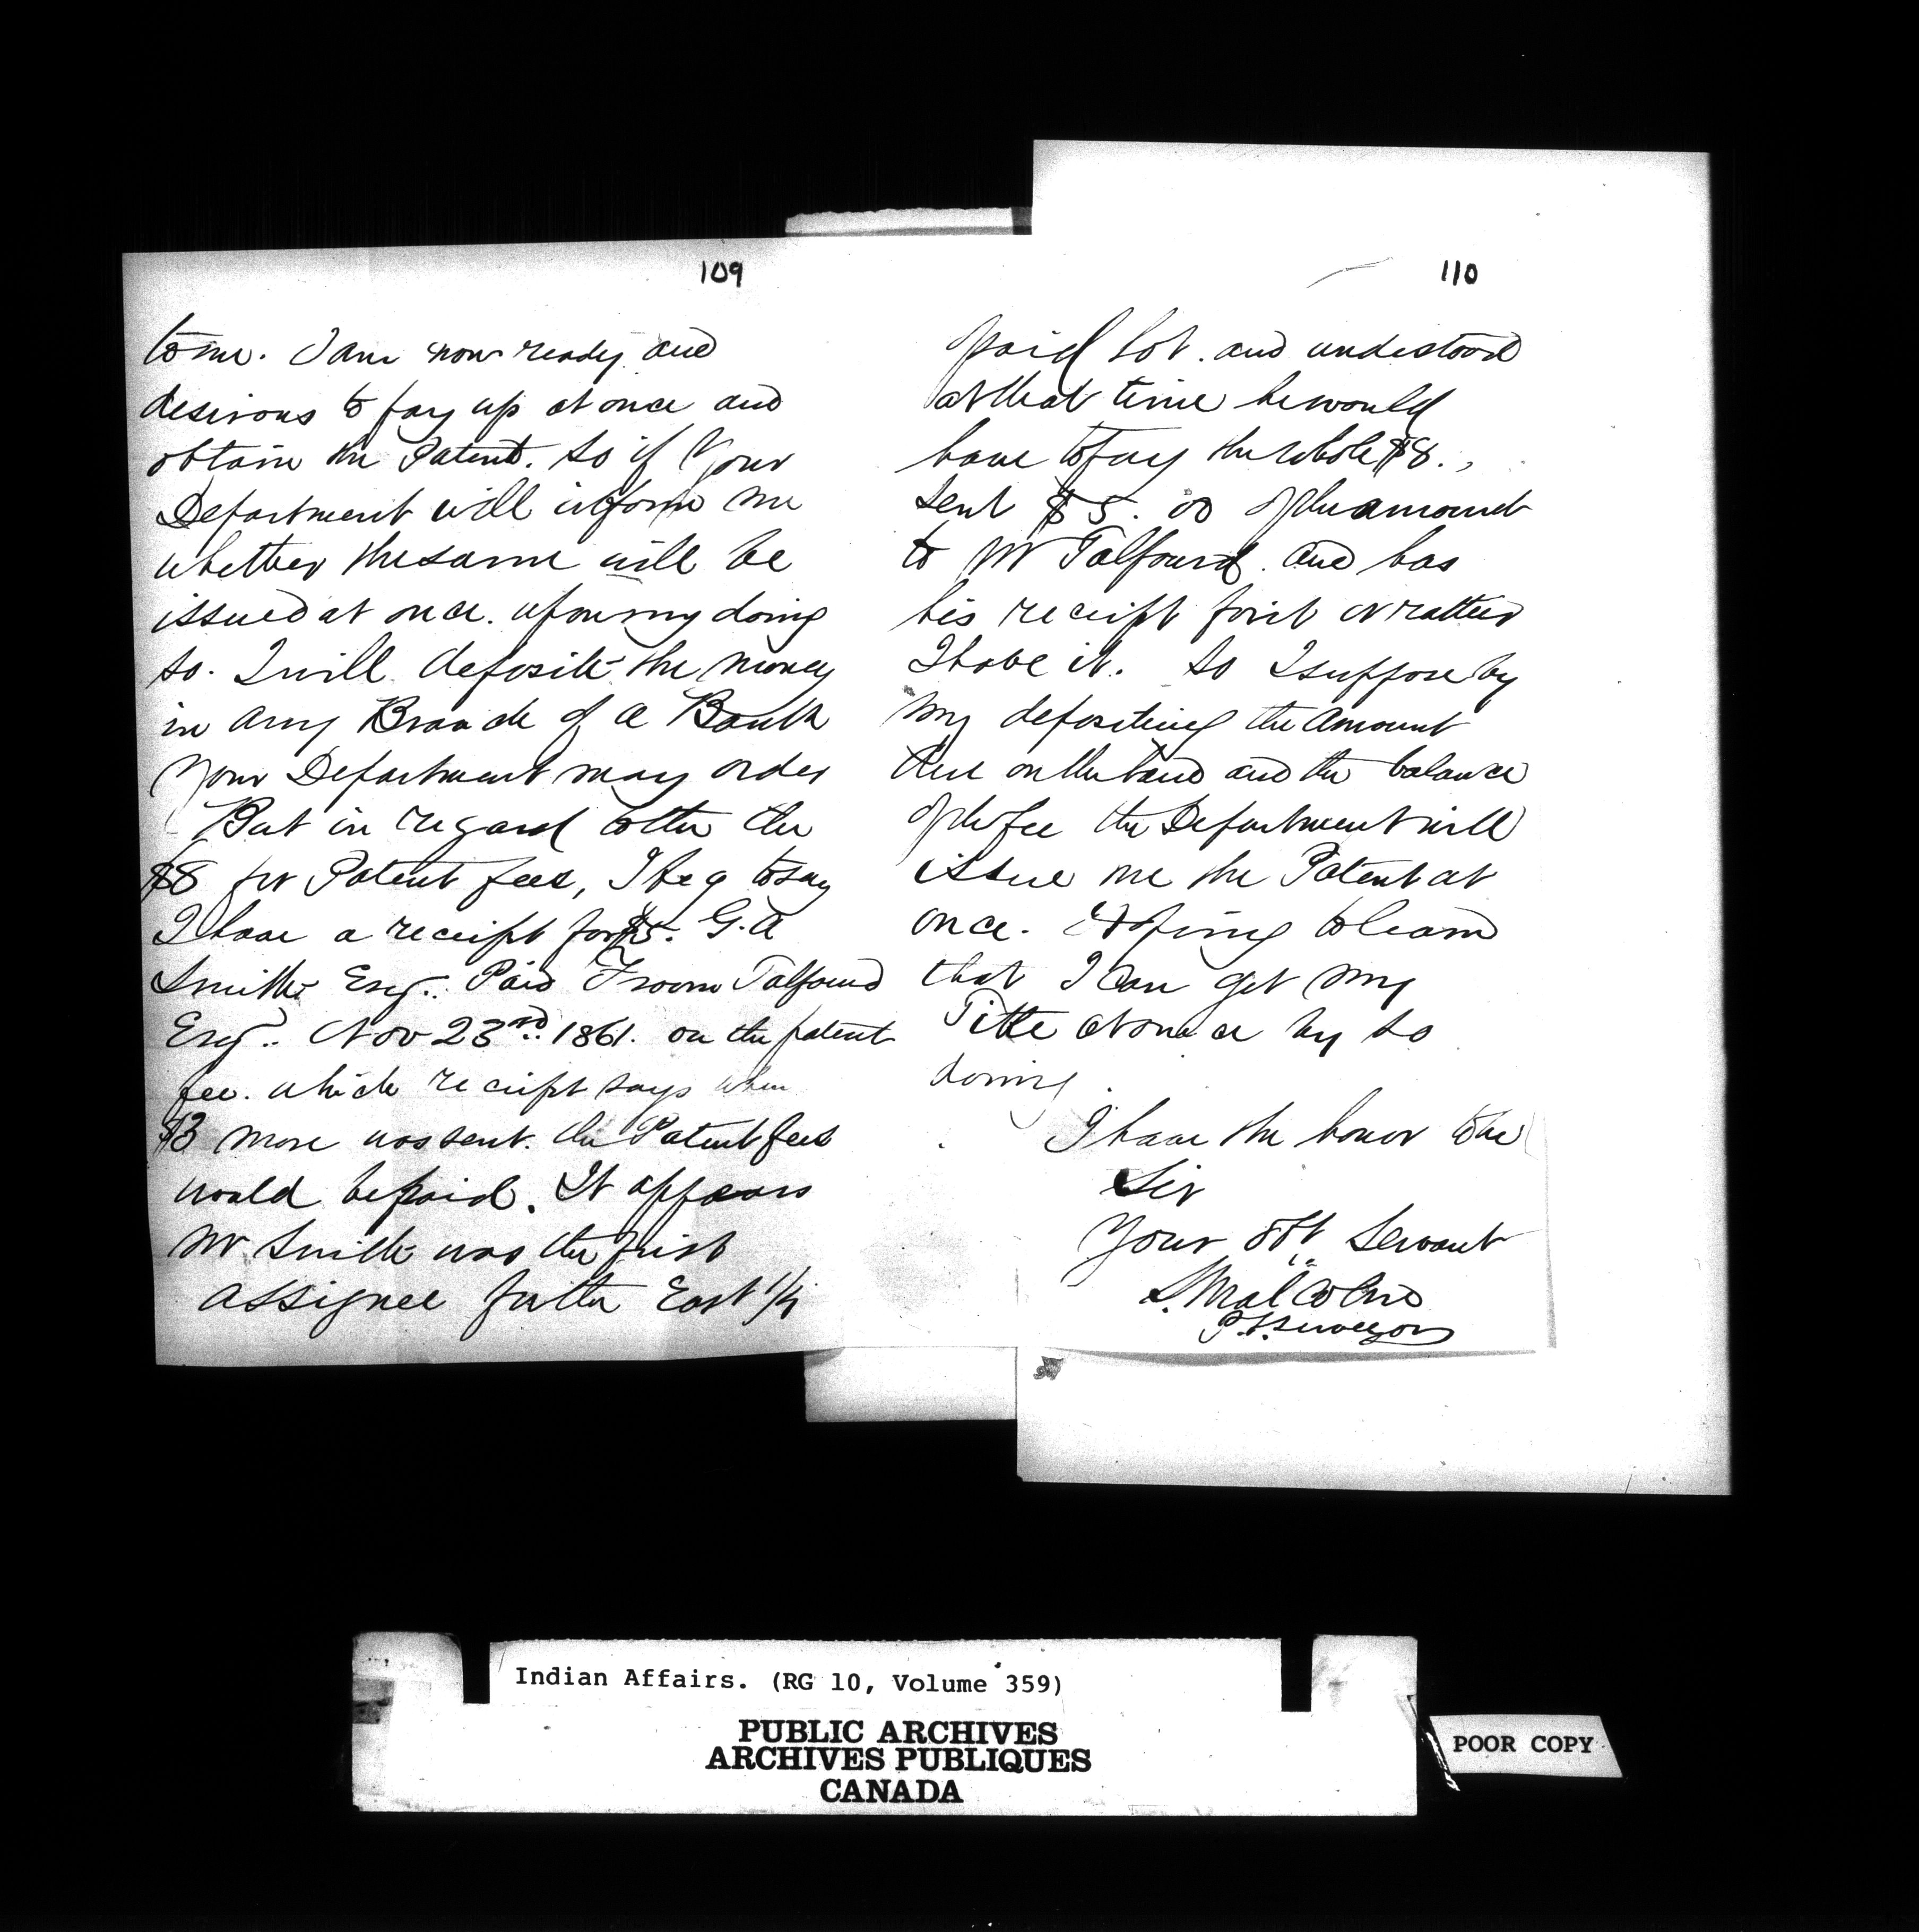 109
to me. I am now ready and
desirous to pay up at once and
obtain the Patent. So if Your
Department will inform me
whether the same will be
issued at once. upon my doing
so. I will deposite the money
in any Branch of a Bank
Your Department may order
But in regard to the the
$8 for Patent fees, I beg to say
I have a receipt for $5. G. A
Smith Esq. Paid Froom Talfourd
Esq. Nov 23rd 1861. on the patent
fee. which receipt says when
$3 more was sent. the Patent fees
would be paid. It appears
Mr Smith was the first
assignee for the East 1/4
110
of said Lot. and understood
at that time he would
have to pay the whole $8.,
sent $5.00 of the amount
to Mr Talfourd. and has
his receipt for it or rather
I have it. So I suppose by
my depositing the amount
due on the land and the balance
of the fee the Department will
issue me the Patent at
once. Hoping to learn
that I can get my
Title at once by so
doing.
I have the honor to be
Sir
Your obt Servant
S. Malcolm
P. L. Surveyor
Indian Affairs. (RG 10, Volume 359)
PUBLIC ARCHIVES
ARCHIVES PUBLIQUES
CANADA
POOR COPY